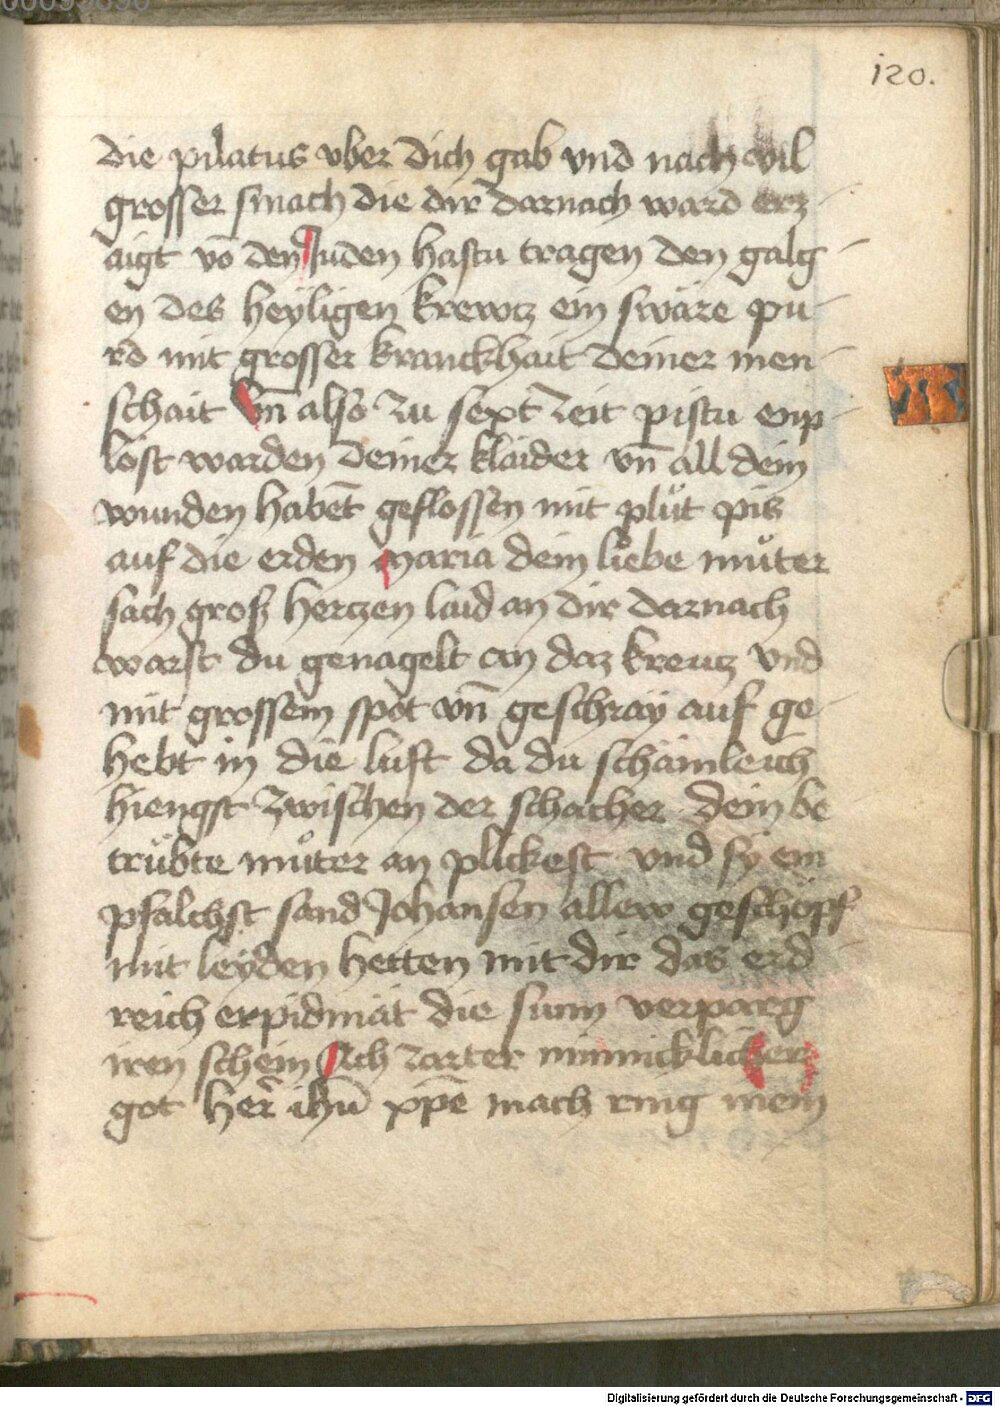 120.
die pilatus vber dich gab vnd nach vil
grosser smach die dir darnach ward erz
aigt vō den Juden hastu tragen den galg
en des heÿligen krewcz ein swäre pu
rd mit grosser kranckhait deiner men
schait Vn̄ also zu sext zeit pistu enp
löst warden deiner klaider vn̄ all dein
wunden habēt geflossen mit plůt pis
auf die erden maria dein liebe můter
sach groß herczen laid an dir darnach
warst du genagelt an daz kreucz vnd
mit grossem spot vn̄ geschraÿ auf ge
hebt in die luft da du schämleich
hiengst zwischen der schacher dein be
trübte můter an plickest vnd sÿ em
pfalchst sand Johansen allew geschöpf
mit leÿden hetten mit dir das erd
reich erpidmät die sunn verparg
iren schein Ach zarter minnicklicher
got her̄ ihū xp̄e mach ring mein
Digitalisierung gefördert durch die Deutsche Forschungsgemeinschaft - DFG